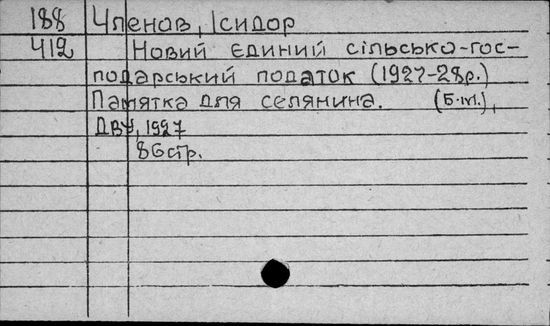 188 Членов, Ісидор
412 Новий єдиний сільсько-гос-
подарський податок (1927-28р.)
Памятка для селянина. (Б.м.),
ДВУ, 1927
86 стр.